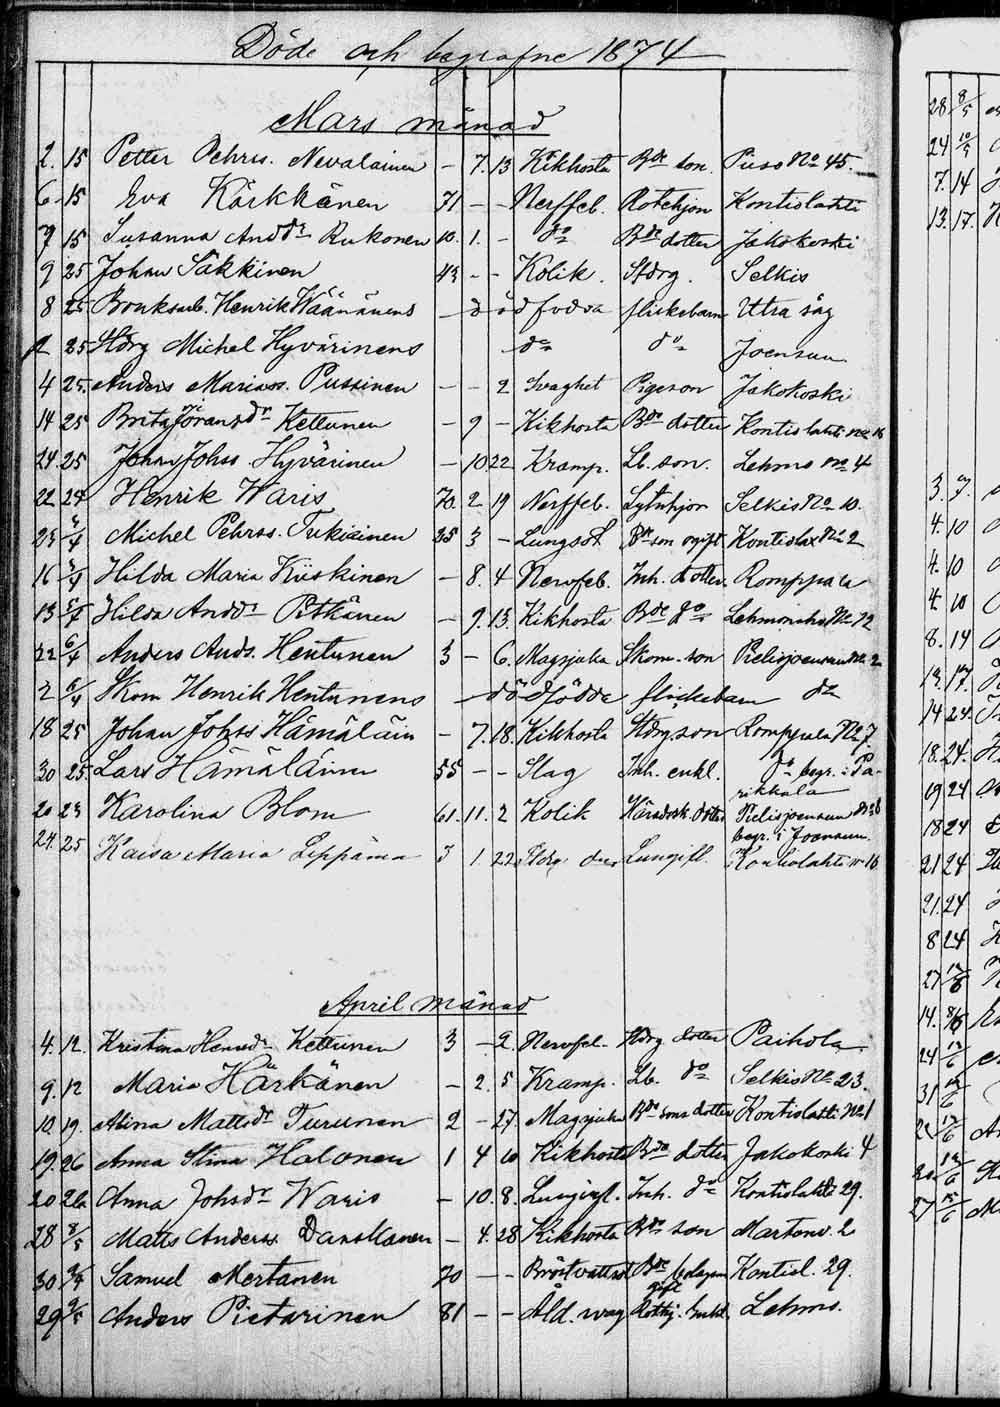 Döde och begrafne 1874
Mars månad
2. 15 Petter Pehrss. Nevalainen — 7. 13 Kikhosta Bde son. Puso No 45.
6 15 Eva Kärkkänen 71 — — Nerffeb. Rotehjon Kontiolahti
7 15 Susanna Anddr Rukonen 10. 1. — do Bde dotter Jakokoski
9 25 Johan Säkkinen 43 — — Kolik. Stdrg. Selkis
8 25 Bruksarb. Henrik Wäänänens — dödfödda flickebarn Utra såg
2 25 Stdrg Michel Hyvärinens do do Joensuu
4 25. Anders Mariass. Pussinen — — 2 Svaghet Pigeson Jakokoski
14 25 Brita Jöransdr Kettunen — 9 — Kikhosta Bde dotter Kontiolahti No 16
24 25 Johan Johss. Hyvärinen — 10 22 Kramp. Lb. son. Lehmo No 4
22 24 Henrik Waris 70. 2 19 Nerffeb. Sytnhjon Selkis No 10.
23 4/4 Michel Pehrss. Tukiainen 25 3 — Lungsot Bde son ogift Kontiolax No 2
16 5/4 Hilda Maria Kiiskinen — 8. 4 Nervfeb. Inh. dotter. Romppala
13 5/4 Hilda Anddr Pitkänen — 9. 13. Kikhosta Bde do Lehmonaho No 12
22 6/4 Anders Ands. Hentunen 3 — 6. Magsjuka Skom. son Pielisjoensuu No 2
2 6/4 Skom Henrik Hentunens — dödfödda flickebarn do
18 25 Johan Johss Hämäläin — 7. 18. Kikhosta Stdrg. son Romppala No 7.
30 25 Lars Hämäläinen 55 — — Slag Inh. enkl. do begr. i Pa-
rikkala
20 23 Karolina Blom 61. 11. 2 Kolik Häradssk. dotter Pielisjoensuu No 6
begr. i Joensuu.
24. 25 Kaisa Maria Leppänen 3 1. 22. Stdrg dotter Lungifl. Kontiolahti No 16
April månad
4. 12. Kristina Henrdr Kettunen 3 — 2. Nervfeb. Stdrg dotter Paihola
9. 12 Maria Härkänen — 2. 5 Kramp. Lb. do Selkis No 23.
10. 19. Alina Mattsdr Turunen 2 — 27. Magsjuka Bde sons dotter Kontiolahti No 1
19. 26 Anna Stina Halonen 1 4 10 Kikhosta Bde dotter Jakokoski 4
20 26 Anna Johsdr Waris — 10. 8. Lunginfl. Inh. do Kontiolahti 29.
28 8/5 Matts Anderss. Danskanen — 4. 28 Kikhosta Bde son Martonv. 2
30 9/5 Samuel Mertanen 70 — — Bröstvattsot Bde bolagsm Kontiol. 29.
gift
29 9/5 Anders Pietarinen 81 — — Åld. svag Rothj. Enkl. Lehmo.
28 8/5
24 10/5
7. 14
13. 17.
4. 10
4. 10
4. 10
8. 14
13. 17.
14 24.
18. 24.
19 24
18 24
21 24
21. 24
8 24